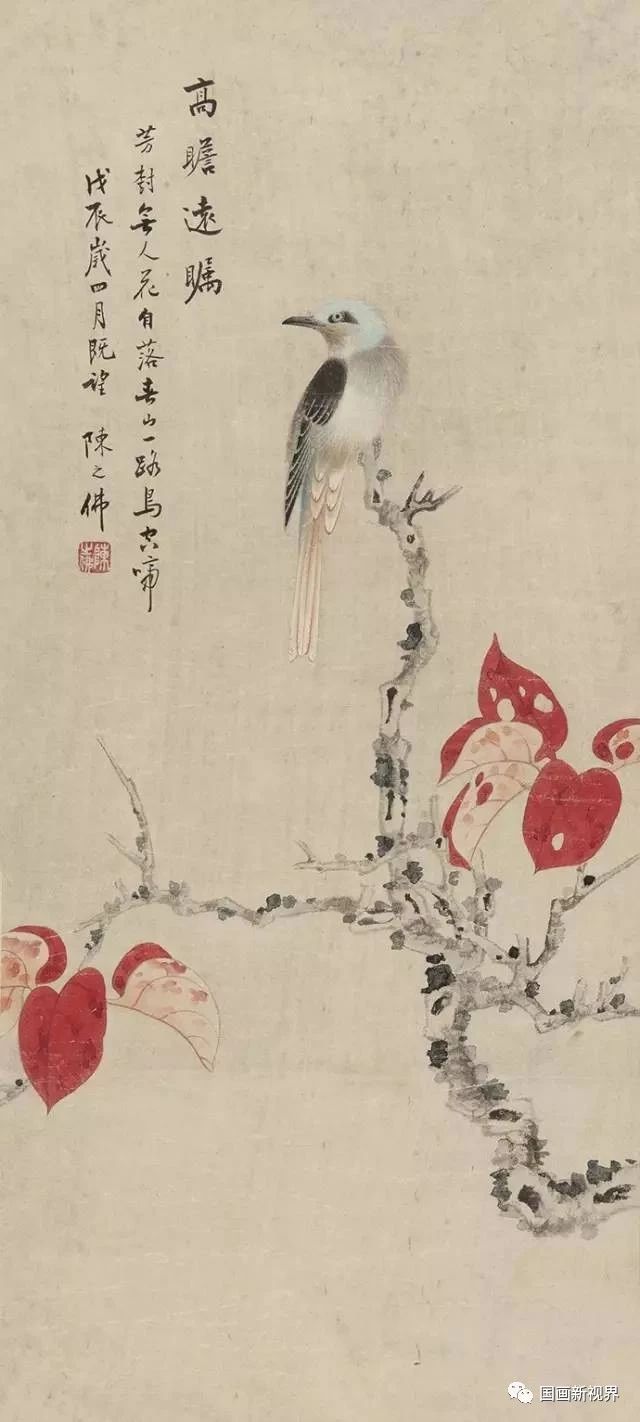 高瞻遠瞩
芳封無人花自落春山一路鳥空啼
戊辰歲四月既望 陳之佛
国画新视界